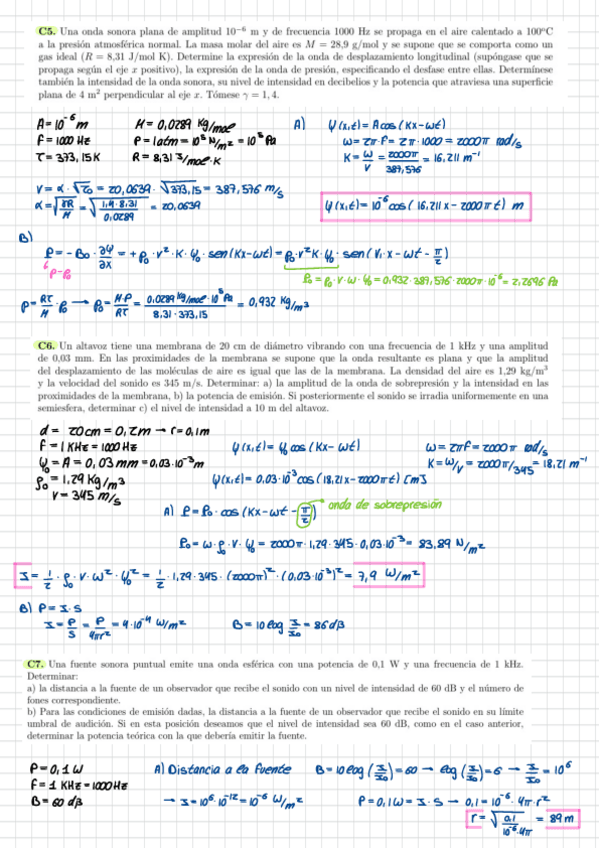 C5. Una onda sonora plana de amplitud 10⁻⁶ m y de frecuencia 1000 Hz se propaga en el aire calentado a 100ºC
a la presión atmosférica normal. La masa molar del aire es M = 28,9 g/mol y se supone que se comporta como un
gas ideal (R = 8,31 J/mol K). Determine la expresión de la onda de desplazamiento longitudinal (supóngase que se
propaga según el eje x positivo), la expresión de la onda de presión, especificando el desfase entre ellas. Determínese
también la intensidad de la onda sonora, su nivel de intensidad en decibelios y la potencia que atraviesa una superficie
plana de 4 m² perpendicular al eje x. Tómese γ = 1,4.
A = 10⁻⁶ m M = 0,0289 kg/mol A) Ψ(x,t) = A cos(Kx - ωt)
F = 1000 Hz P = 1 atm = 10⁵ N/m² = 10⁵ Pa ω = 2π·F = 2π·1000 = 2000π rad/s
T = 373,15K R = 8,31 J/mol·K K = ω/v = 2000π/387,576 = 16,211 m⁻¹
V = α·√T0 = 20,0639·√373,15 = 387,576 m/s
α = √(γR/M) = √(1,4·8,31/0,0289) = 20,0639
Ψ(x,t) = 10⁻⁶ cos(16,211x - 2000πt) m
B)
P = -B0·∂Ψ/∂x = +ρ0·v²·K·Ψ0·sen(Kx-ωt) = ρ0·v²K·Ψ0·sen(K·x - ωt - π/2)
P-P0
P0 = ρ0·v·ω·Ψ0 = 0,932·387,576·2000π·10⁻⁶ = 2,2696 Pa
P = RT/M·ρ0 → ρ0 = M·P/RT = 0,0289 kg/mol·10⁵ Pa/8,31·373,15 = 0,932 kg/m³
C6. Un altavoz tiene una membrana de 20 cm de diámetro vibrando con una frecuencia de 1 kHz y una amplitud
de 0,03 mm. En las proximidades de la membrana se supone que la onda resultante es plana y que la amplitud
del desplazamiento de las moléculas de aire es igual que las de la membrana. La densidad del aire es 1,29 kg/m³
y la velocidad del sonido es 345 m/s. Determinar: a) la amplitud de la onda de sobrepresión y la intensidad en las
proximidades de la membrana, b) la potencia de emisión. Si posteriormente el sonido se irradia uniformemente en una
semiesfera, determinar c) el nivel de intensidad a 10 m del altavoz.
d = 20cm = 0,2m → r = 0,1m
F = 1 KHz = 1000 Hz Ψ(x,t) = Ψ0 cos(Kx - ωt) ω = 2πF = 2000π rad/s
Ψ0 = A = 0,03 mm = 0,03·10⁻³ m K = ω/v = 2000π/345 = 18,21 m⁻¹
ρ0 = 1,29 kg/m³ Ψ(x,t) = 0,03·10⁻³ cos(18,21x - 2000πt) [m]
V = 345 m/s
A) P = P0·cos(Kx - ωt - π/2) onda de sobrepresión
P0 = ω·ρ0·v·Ψ0 = 2000π·1,29·345·0,03·10⁻³ = 83,89 N/m²
I = 1/2·ρ0·v·ω²·Ψ0² = 1/2·1,29·345·(2000π)²·(0,03·10⁻³)² = 7,9 W/m²
B) P = I·S
I = P/S = P/4πr² = 4·10⁻⁴ W/m² B = 10 log I/I0 = 86 dB
C7. Una fuente sonora puntual emite una onda esférica con una potencia de 0,1 W y una frecuencia de 1 kHz.
Determinar:
a) la distancia a la fuente de un observador que recibe el sonido con un nivel de intensidad de 60 dB y el número de
fones correspondiente.
b) Para las condiciones de emisión dadas, la distancia a la fuente de un observador que recibe el sonido en su límite
umbral de audición. Si en esta posición deseamos que el nivel de intensidad sea 60 dB, como en el caso anterior,
determinar la potencia teórica con la que debería emitir la fuente.
P = 0,1 W A) Distancia a la fuente B = 10 log(I/I0) = 60 → log(I/I0) = 6 → I/I0 = 10⁶
F = 1 KHz = 1000 Hz
B = 60 dB → I = 10⁶·10⁻¹² = 10⁻⁶ W/m² P = 0,1W = I·S → 0,1 = 10⁻⁶·4π·r²
r = √(0,1/10⁻⁶·4π) = 89 m